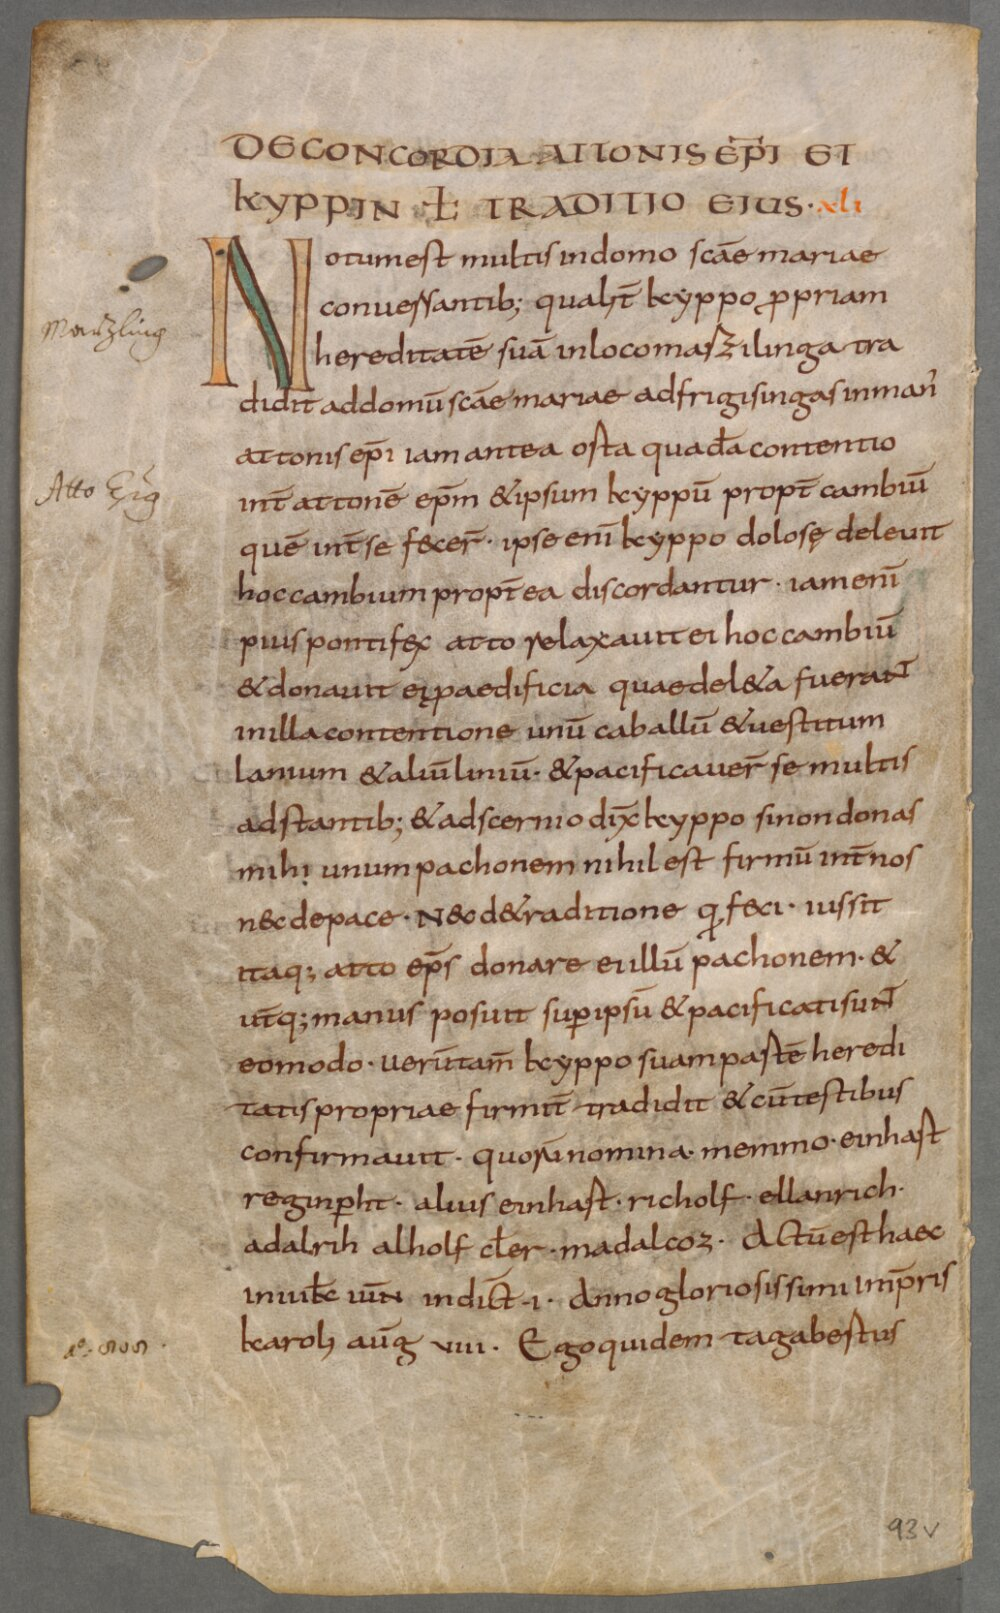 DECONCORDIA ATTONIS EP̄I ET
KYPPIN ET TRADITIO EIUS · xli
Notum est multis in domo sc̄ae mariae
conuersantib; qualit̄ kyppo ꝓpriam
Marzling
hereditatē suā inloco marzilinga tra
didit addomū sc̄ae mariae adfrigisingas inman̄
attonis ep̄i iam antea orta quadā contentio
Atto
int̄ attonē ep̄m &ipsum kyppū propt̄ cambiū
quē int̄ se fecer̄ · ipse enī kyppo dolosę deleuit
hoc cambium propt̄ea discordantur · iam enī
pius pontifex atto relaxauit ei hoc cambiū
&donauit ei ꝓ aedificia quae del&a fuerant
inilla contentione unū caballū &uestitum
lanium &aliū liniū · &pacificauer̄ se multis
adstantib; &adscernio dix̄ kyppo sinon donas
mihi unum pachonem nihil est firmū int̄ nos
nec depace · Nec d&raditione q̄ feci · iussit
itaq; atto ep̄s donare ei illū pachonem · &
ut̄q; manus posuit sup̄ ipsū &pacificati sunt
eomodo · uerūtam̄ kyppo suam partē heredi
tatis propriae firmit̄ tradidit &cū testibus
confirmauit · quorū nomina · memmo · einhart
reginp̄ht · alius einhart · richolf · ellanrich ·
adalrih alholf cl̄er · madalcoz · Actū est haec
indict̄ · i · Anno gloriosissimi imp̄ris
karoli auḡ viii · Ego quidem tagabertus
93v